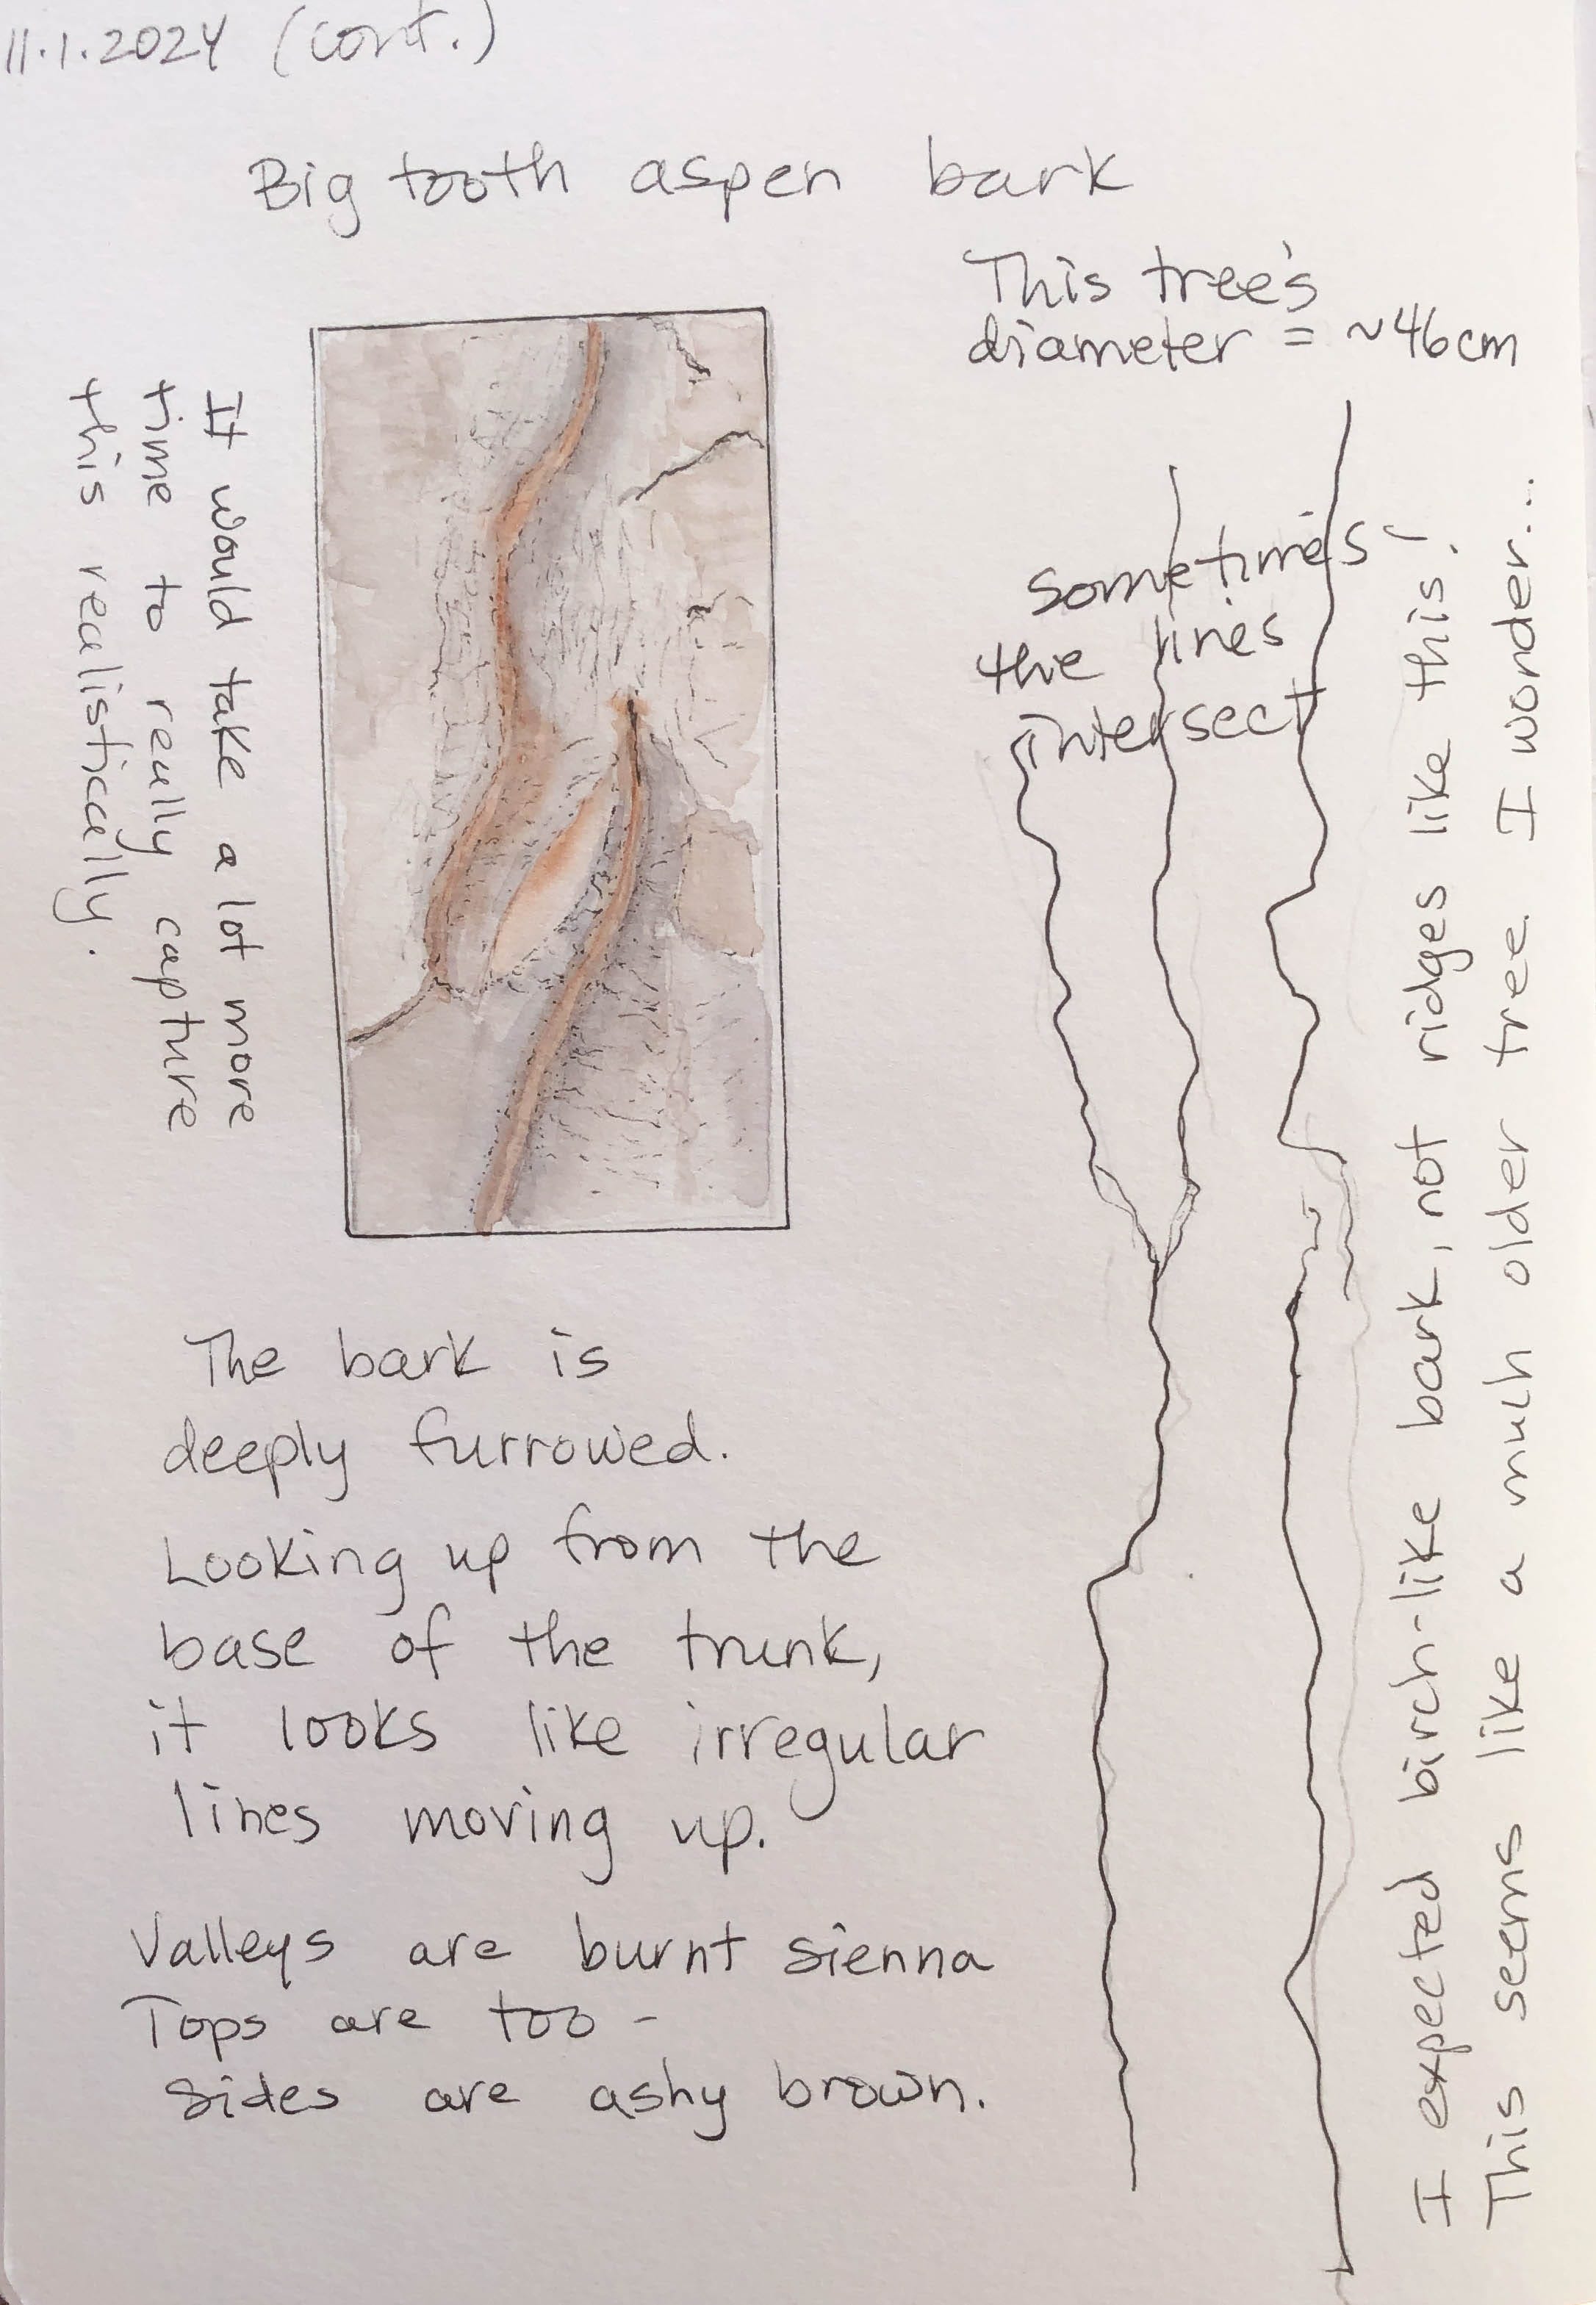 11.1.2024 (cont.)
Big tooth aspen bark
This tree's
diameter = ~46cm
It would take a lot more
time to really capture
this realistically.
Sometimes
the lines
intersect
I expected birch-like bark, not ridges like this!
This seems like a much older tree. I wonder...
The bark is
deeply furrowed.
Looking up from the
base of the trunk,
it looks like irregular
lines moving up.
Valleys are burnt sienna
Tops are too -
sides are ashy brown.